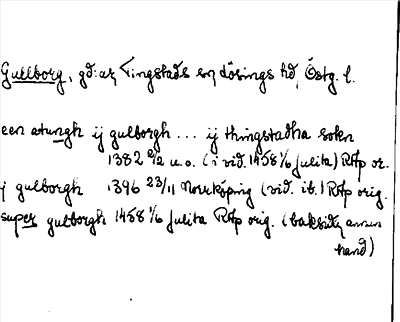 Gullborg, gd: av Tingstads sn, Lösings hd, Östg. l.
een atungh ij gulborgh ... ij thingstadha sokn
1382 2/2 u.o. (i vid. 1458 1/6 Julita) RAp or.
j gulborgh 1396 23/11 Norrköping (vid. ib.) RAp orig.
super gulborgh 1458 1/6 Julita RAp orig. (baksida, annan
hand)